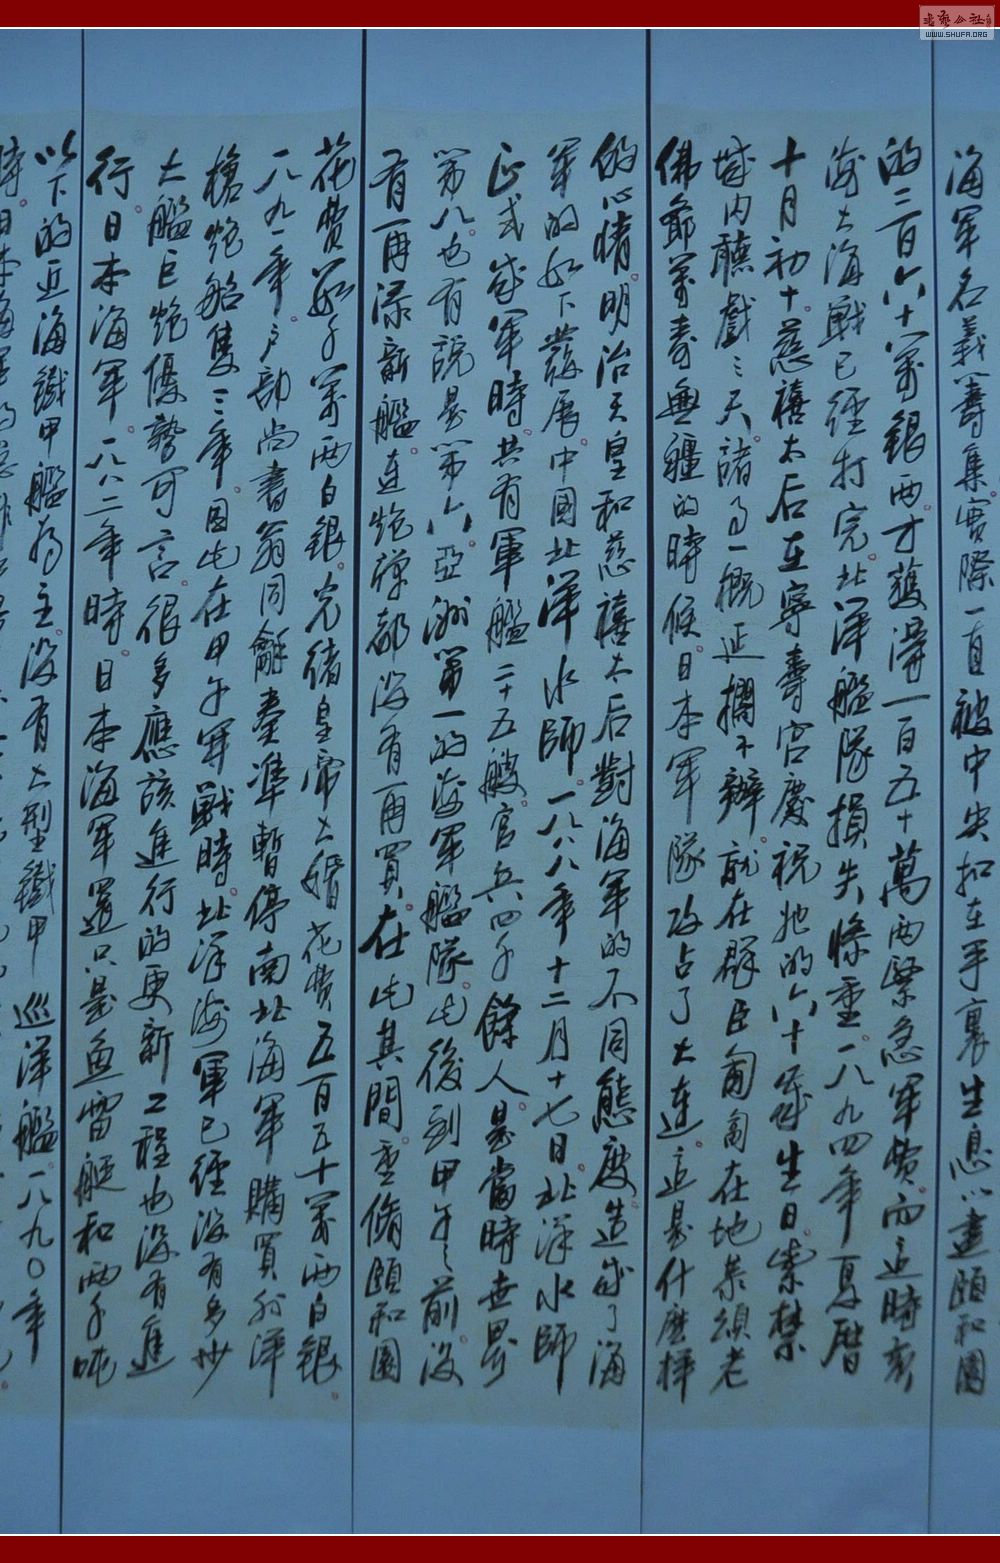 海軍名義籌集實際一直被中央扣在手裏生息以建頤和園
的二百六十萬銀兩才獲得一百五十萬兩緊急軍費而這時刻
海大海戰已經打完北洋艦隊損失慘重一八九四年夏曆
十月初十慈禧太后在寧壽宮慶祝她的六十歲生日紫禁
城內聽戲三天諸事一概延擱不辦就在群臣匍匐在地恭頌老
佛爺萬壽無疆的時候日本軍隊攻占了大連這是什麼樣
的心情明治天皇和慈禧太后對海軍的不同態度造成了海
軍的如下發展中國北洋水師一八八八年十二月十七日北洋水師
正式成軍時共有軍艦二十五艘官兵四千餘人是當時世界
第八也有說是第六亞洲第一的海軍艦隊此後到甲午之前沒
有再添新艦連炮彈都沒有再買在此其間重脩頤和園
花費數千萬兩白銀光緒皇帝大婚花費五百五十萬兩白銀
一八九一年戶部尚書翁同龢奏準暫停南北海軍購買外洋
槍炮船隻三年因此在甲午軍戰時北洋海軍已經沒有多少
大艦巨炮優勢可言很多應該進行的更新工程也沒有進
行日本海軍一八八二年時日本海軍還只是魚雷艇和兩千噸
以下的近海鐵甲艦為主沒有大型鐵甲巡洋艦一八九〇年
時日本海軍的
書藝公社
WWW.SHUFA.ORG